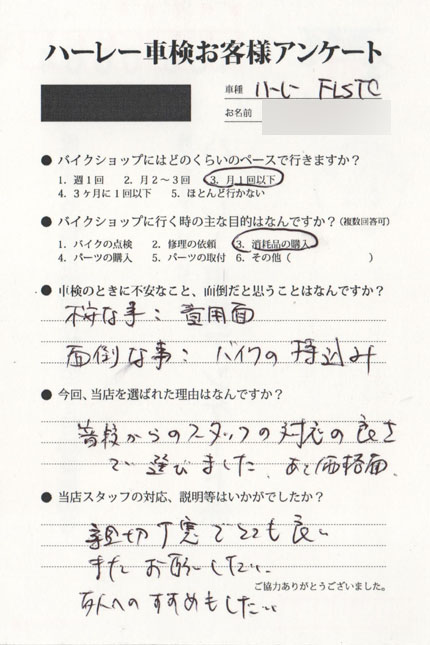 ハーレー車検お客様アンケート
車種 ハーレー FLSTC
お名前
● バイクショップにはどのくらいのペースで行きますか？
1. 週1回 2. 月2～3回 3. 月1回以下
4. 3ヶ月に1回以下 5. ほとんど行かない
● バイクショップに行く時の主な目的はなんですか？(複数回答可)
1. バイクの点検 2. 修理の依頼 3. 消耗品の購入
4. パーツの購入 5. パーツの取付 6. その他（ ）
● 車検のときに不安なこと、面倒だと思うことはなんですか？
不安な事：費用面
面倒な事：バイクの持込み
● 今回、当店を選ばれた理由はなんですか？
普段からのスタッフの対応の良さ
で選びました、あと価格面、
● 当店スタッフの対応、説明等はいかがでしたか？
親切丁寧でとても良い
またお願いしたい
ご協力ありがとうございました。
友人へのすすめもしたい